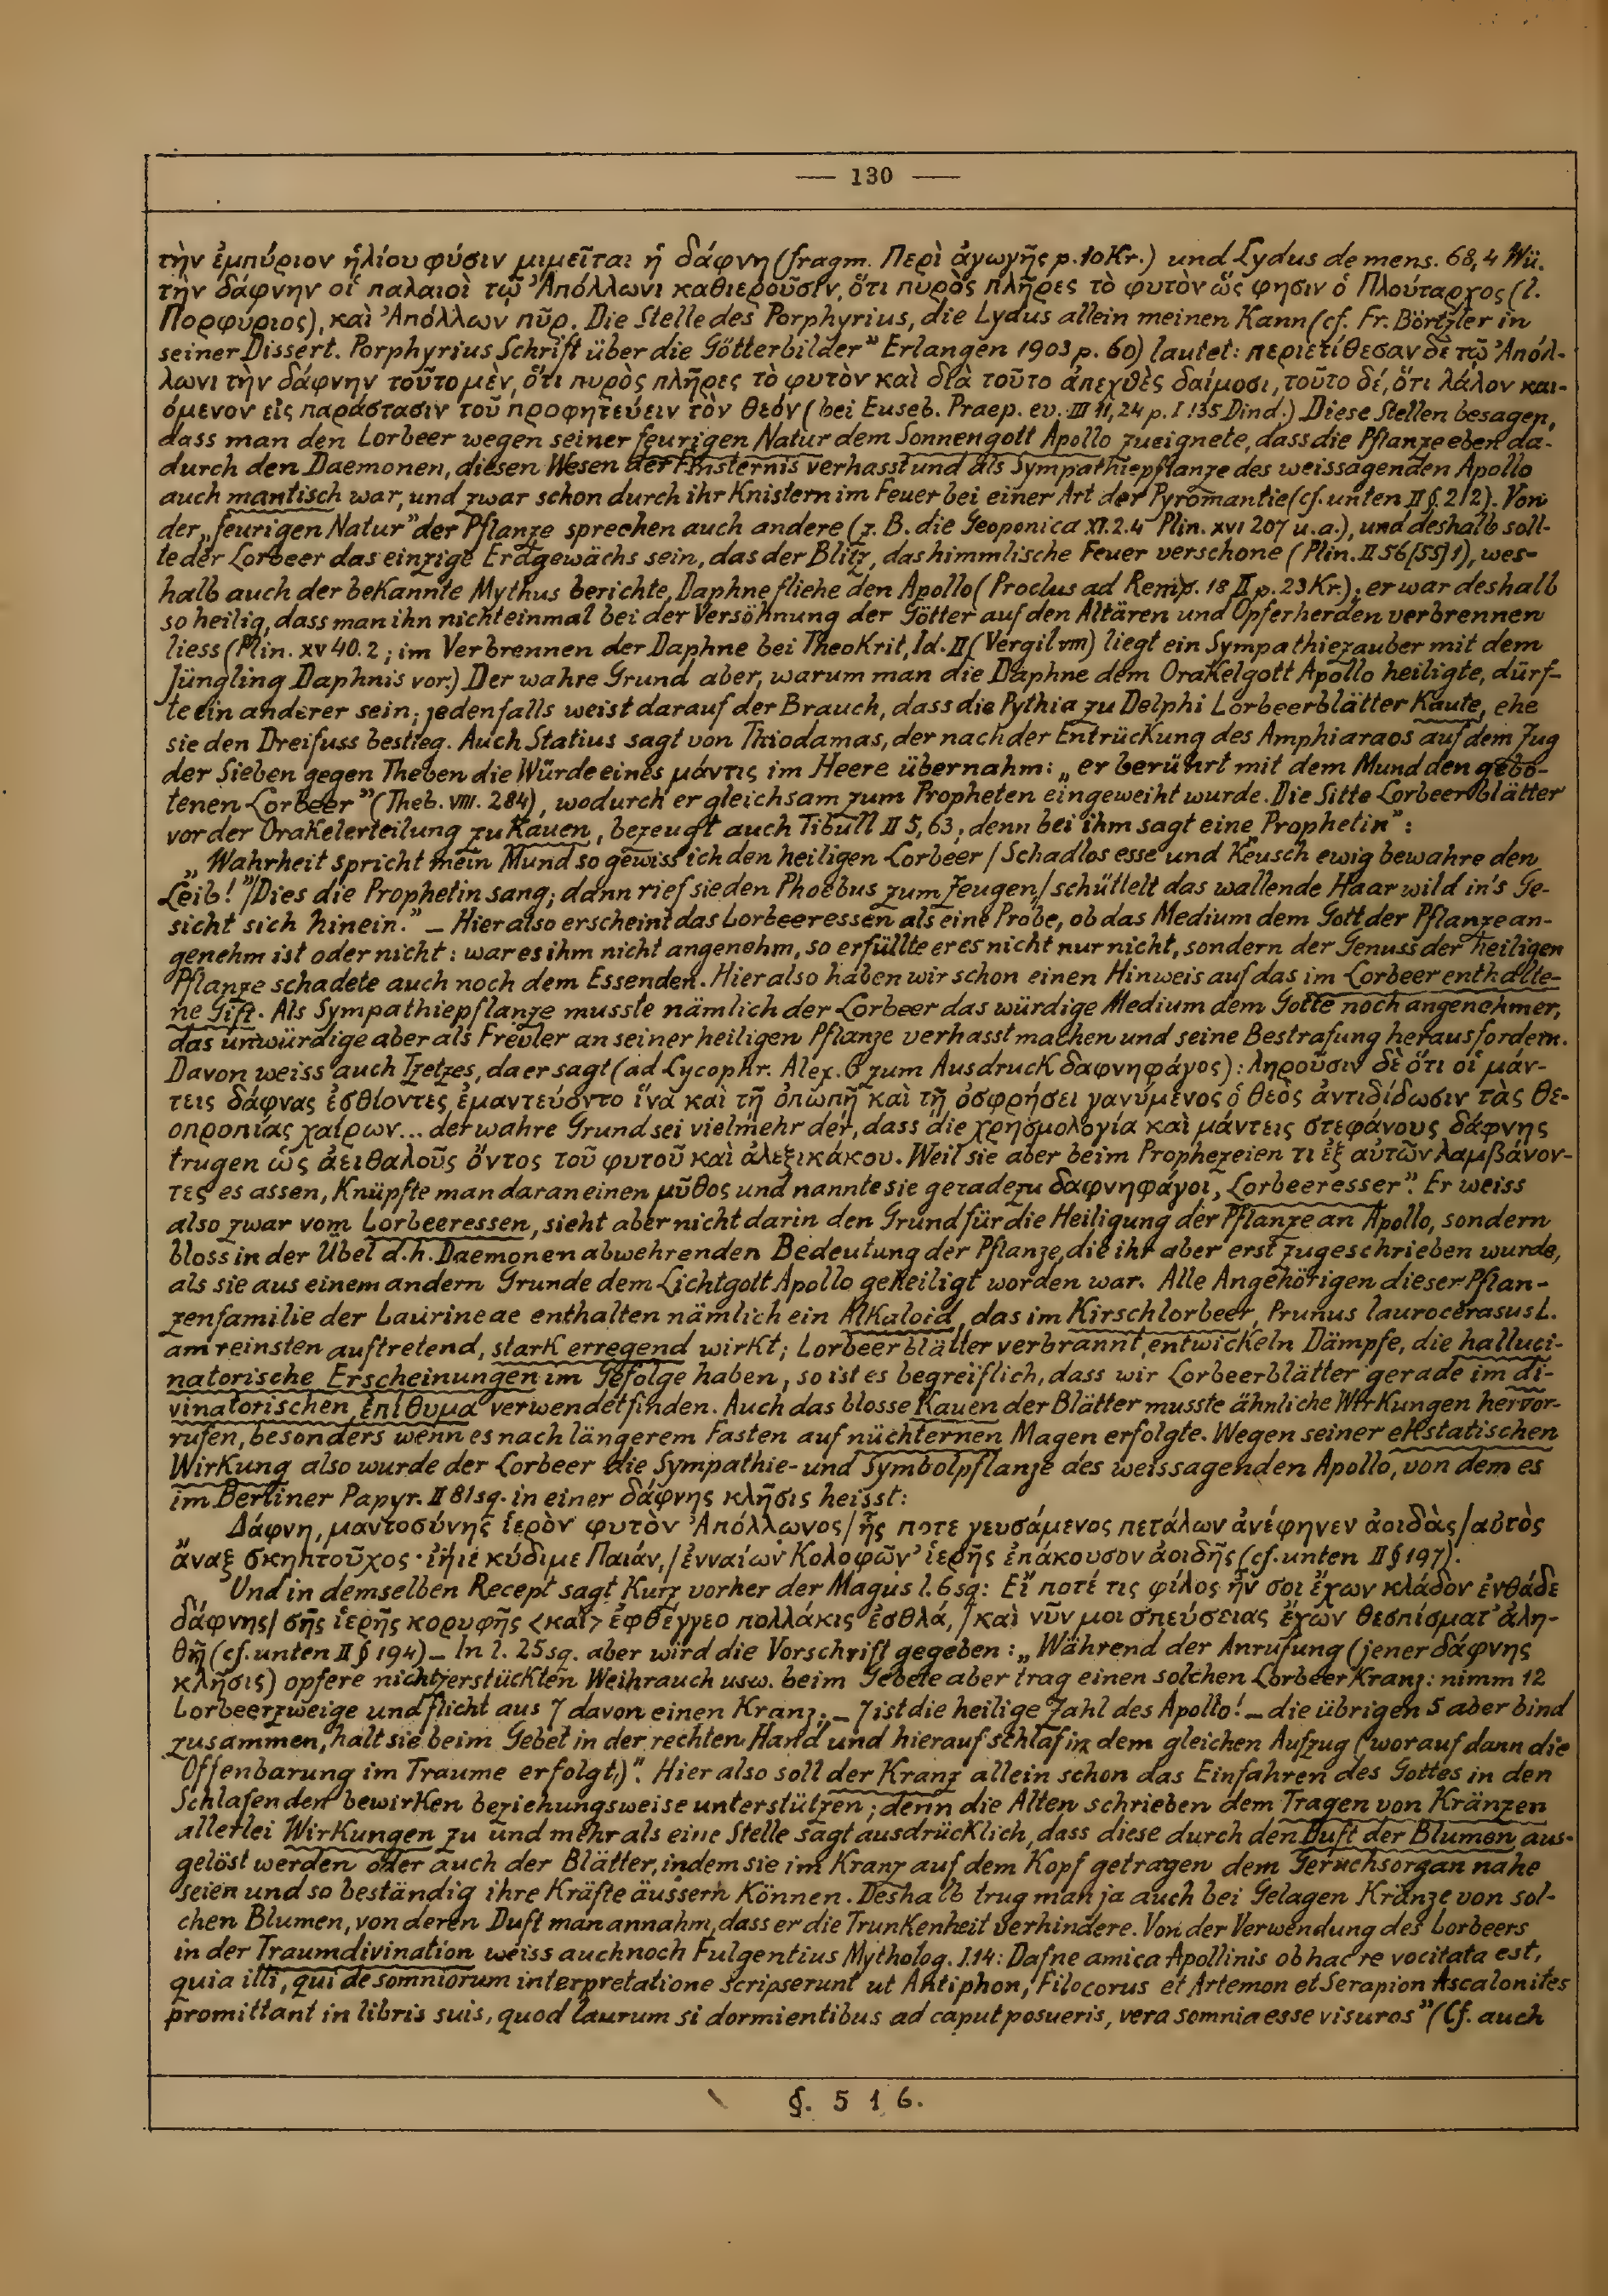 — 130 —
τὴν ἐμπύριον ἡλίου φύσιν μιμεῖται ἡ δάφνη (fragm. Περὶ ἀγωγῆς p. 10 Kr.) und Lydus de mens. 68,4 Wü.
τὴν δάφνην οἱ παλαιοὶ τῷ Ἀπόλλωνι καθιεροῦσιν, ὅτι πυρὸς πλῆρες τὸ φυτὸν ὥς φησιν ὁ Πλούταρχος (l.
Πορφύριος), καὶ Ἀπόλλων πῦρ. Die Stelle des Porphyrius, die Lydus allein meinen kann (cf. Fr. Börtzler in
seiner Dissert. Porphyrius Schrift über die Götterbilder" Erlangen 1903 p. 60) lautet: περιετίθεσαν δὲ τῷ Ἀπόλ-
λωνι τὴν δάφνην τοῦτο μὲν, ὅτι πυρὸς πλῆρες τὸ φυτὸν καὶ διὰ τοῦτο ἀπεχθὲς δαίμοσι, τοῦτο δέ, ὅτι λάλον και-
όμενον εἰς παράστασιν τοῦ προφητεύειν τὸν θεόν (bei Euseb. Praep. ev. III 11,24 p. I 135 Dind.) Diese Stellen besagen,
dass man den Lorbeer wegen seiner feurigen Natur dem Sonnengott Apollo zueignete, dass die Pflanze eben da-
durch den Daemonen, diesen Wesen der Finsternis verhasst und als Sympathiepflanze des weissagenden Apollo
auch mantisch war, und zwar schon durch ihr Knistern im Feuer bei einer Art der Pyromantie (cf. unten II §. 212). Von
der „feurigen Natur" der Pflanze sprechen auch andere (z. B. die Geoponica XI. 2.4 Plin. XVI 207 u. a.), und deshalb soll-
te der Lorbeer das einzige Erdgewächs sein, das der Blitz, das himmlische Feuer verschone (Plin. II 56 [55] 1), wes-
halb auch der bekannte Mythus berichte, Daphne fliehe den Apollo (Proclus ad Remp. 18 II p. 23 Kr.); er war deshalb
so heilig, dass man ihn nicht einmal bei der Versöhnung der Götter auf den Altären und Opferherden verbrennen
liess (Plin. XV 40. 2; im Verbrennen der Daphne bei Theokrit, Id. II (Vergil VIII) liegt ein Sympathiezauber mit dem
Jüngling Daphnis vor.) Der wahre Grund aber, warum man die Daphne dem Orakelgott Apollo heiligte, dürf-
te ein anderer sein; jedenfalls weist darauf der Brauch, dass die Pythia zu Delphi Lorbeerblätter kaute, ehe
sie den Dreifuss bestieg. Auch Statius sagt von Thiodamas, der nach der Entrückung des Amphiaraos auf dem Zug
der Sieben gegen Theben die Würde eines μάντις im Heere übernahm: „er berührt mit dem Mund den gebo-
tenen Lorbeer" (Theb. VIII. 284), wodurch er gleichsam zum Propheten eingeweiht wurde. Die Sitte Lorbeerblätter
vor der Orakelerteilung zu kauen, bezeugt auch Tibull II 5, 63; denn bei ihm sagt eine Prophetin":
„Wahrheit spricht mein Mund so gewiss ich den heiligen Lorbeer / Schadlos esse und keusch ewig bewahre den
Leib!"/Dies die Prophetin sang; dann rief sie den Phoebus zum Zeugen/ schüttelt das wallende Haar wild in's Ge-
sicht sich hinein." – Hier also erscheint das Lorbeeressen als eine Probe, ob das Medium dem Gott der Pflanze an-
genehm ist oder nicht: war es ihm nicht angenehm, so erfüllte er es nicht nur nicht, sondern der Genuss der heiligen
Pflanze schadete auch noch dem Essenden. Hier also haben wir schon einen Hinweis auf das im Lorbeer enthalte-
ne Gift. Als Sympathiepflanze musste nämlich der Lorbeer das würdige Medium dem Gotte noch angenehmer,
das unwürdige aber als Frevler an seiner heiligen Pflanze verhasst machen und seine Bestrafung herausfordern.
Davon weiss auch Tzetzes, da er sagt (ad Lycophr. Alex. 6 zum Ausdruck δαφνηφάγος): ληροῦσιν δὲ ὅτι οἱ μάν-
τεις δάφνας ἐσθίοντες ἐμαντεύοντο ἵνα καὶ τῇ ὀπωπῇ καὶ τῇ ὀσφρήσει γανύμενος ὁ θεὸς ἀντιδίδωσιν τὰς θε-
οπροπίας χαίρων... der wahre Grund sei vielmehr der, dass die χρησμολογία καὶ μάντεις στεφάνους δάφνης
trugen ὡς ἀειθαλοῦς ὄντος τοῦ φυτοῦ καὶ ἀλεξικάκου. Weil sie aber beim Prophezeien τι ἐξ αὐτῶν λαμβάνον-
τες es assen, knüpfte man daran einen μῦθος und nannte sie geradezu δαφνηφάγοι, Lorbeeresser". Er weiss
also zwar vom Lorbeeressen, sieht aber nicht darin den Grund für die Heiligung der Pflanze an Apollo, sondern
bloss in der Übel d. h. Daemonen abwehrenden Bedeutung der Pflanze, die ihr aber erst zugeschrieben wurde,
als sie aus einem andern Grunde dem Lichtgott Apollo geheiligt worden war. Alle Angehörigen dieser Pflan-
zenfamilie der Laurineae enthalten nämlich ein Alkaloid, das im Kirschlorbeer, Prunus laurocerasus L.
am reinsten auftretend, stark erregend wirkt; Lorbeerblätter verbrannt, entwickeln Dämpfe, die halluci-
natorische Erscheinungen im Gefolge haben, so ist es begreiflich, dass wir Lorbeerblätter gerade im di-
vinatorischen ἐπίθυμα verwendet finden. Auch das blosse Kauen der Blätter musste ähnliche Wirkungen hervor-
rufen, besonders wenn es nach längerem Fasten auf nüchternen Magen erfolgte. Wegen seiner ekstatischen
Wirkung also wurde der Lorbeer die Sympathie- und Symbolpflanze des weissagenden Apollo, von dem es
im Berliner Papyr. II 81 sq. in einer δάφνης κλῆσις heisst:
„Δάφνη, μαντοσύνης ἱερὸν φυτὸν Ἀπόλλωνος/ ἧς ποτε γευσάμενος πετάλων ἀνέφηνεν ἀοιδὰς/ αὐτὸς
ἄναξ σκηπτοῦχος· ἰήιε κύδιμε Παιάν,/ ἐνναίων Κολοφῶν' ἱερῆς ἐπάκουσον ἀοιδῆς (cf. unten II § 197).
Und in demselben Recept sagt kurz vorher der Magus l. 6 sq: Εἴ ποτέ τις φίλος ἦν σοι ἔχων κλάδον ἐνθάδε
δάφνης/ σῆς ἱερῆς κορυφῆς <καὶ> ἐφθέγγεο πολλάκις ἐσθλά,/ καὶ νῦν μοι σπεύσειας ἔχων θεσπίσματ' ἀλη-
θῆ (cf. unten II § 194) – In l. 25 sq. aber wird die Vorschrift gegeben: „Während der Anrufung (jener δάφνης
κλῆσις) opfere nichtzerstückten Weihrauch usw. beim Gebete aber trag einen solchen Lorbeerkranz: nimm 12
Lorbeerzweige und flicht aus 7 davon einen Kranz; – 7 ist die heilige Zahl des Apollo! – die übrigen 5 aber bind
zusammen, halt sie beim Gebet in der rechten Hand und hierauf schlaf in dem gleichen Aufzug (worauf dann die
Offenbarung im Traume erfolgt)". Hier also soll der Kranz allein schon das Einfahren des Gottes in den
Schlafenden bewirken beziehungsweise unterstützen; denn die Alten schrieben dem Tragen von Kränzen
allerlei Wirkungen zu und mehr als eine Stelle sagt ausdrücklich, dass diese durch den Duft der Blumen aus-
gelöst werden oder auch der Blätter, indem sie im Kranz auf dem Kopf getragen dem Geruchsorgan nahe
seien und so beständig ihre Kräfte äussern können. Deshalb trug man ja auch bei Gelagen Kränze von sol-
chen Blumen, von deren Duft man annahm, dass er die Trunkenheit verhindere. Von der Verwendung des Lorbeers
in der Traumdivination weiss auch noch Fulgentius Mytholog. I. 14: Dafne amica Apollinis ob hac re vocitata est,
quia illi, qui de somniorum interpretatione scripserunt ut Antiphon, Filocorus et Artemon et Serapion Ascalonites
promittant in libris suis, quod laurum si dormientibus ad caput posueris, vera somnia esse visuros" (Cf. auch
§. 516.